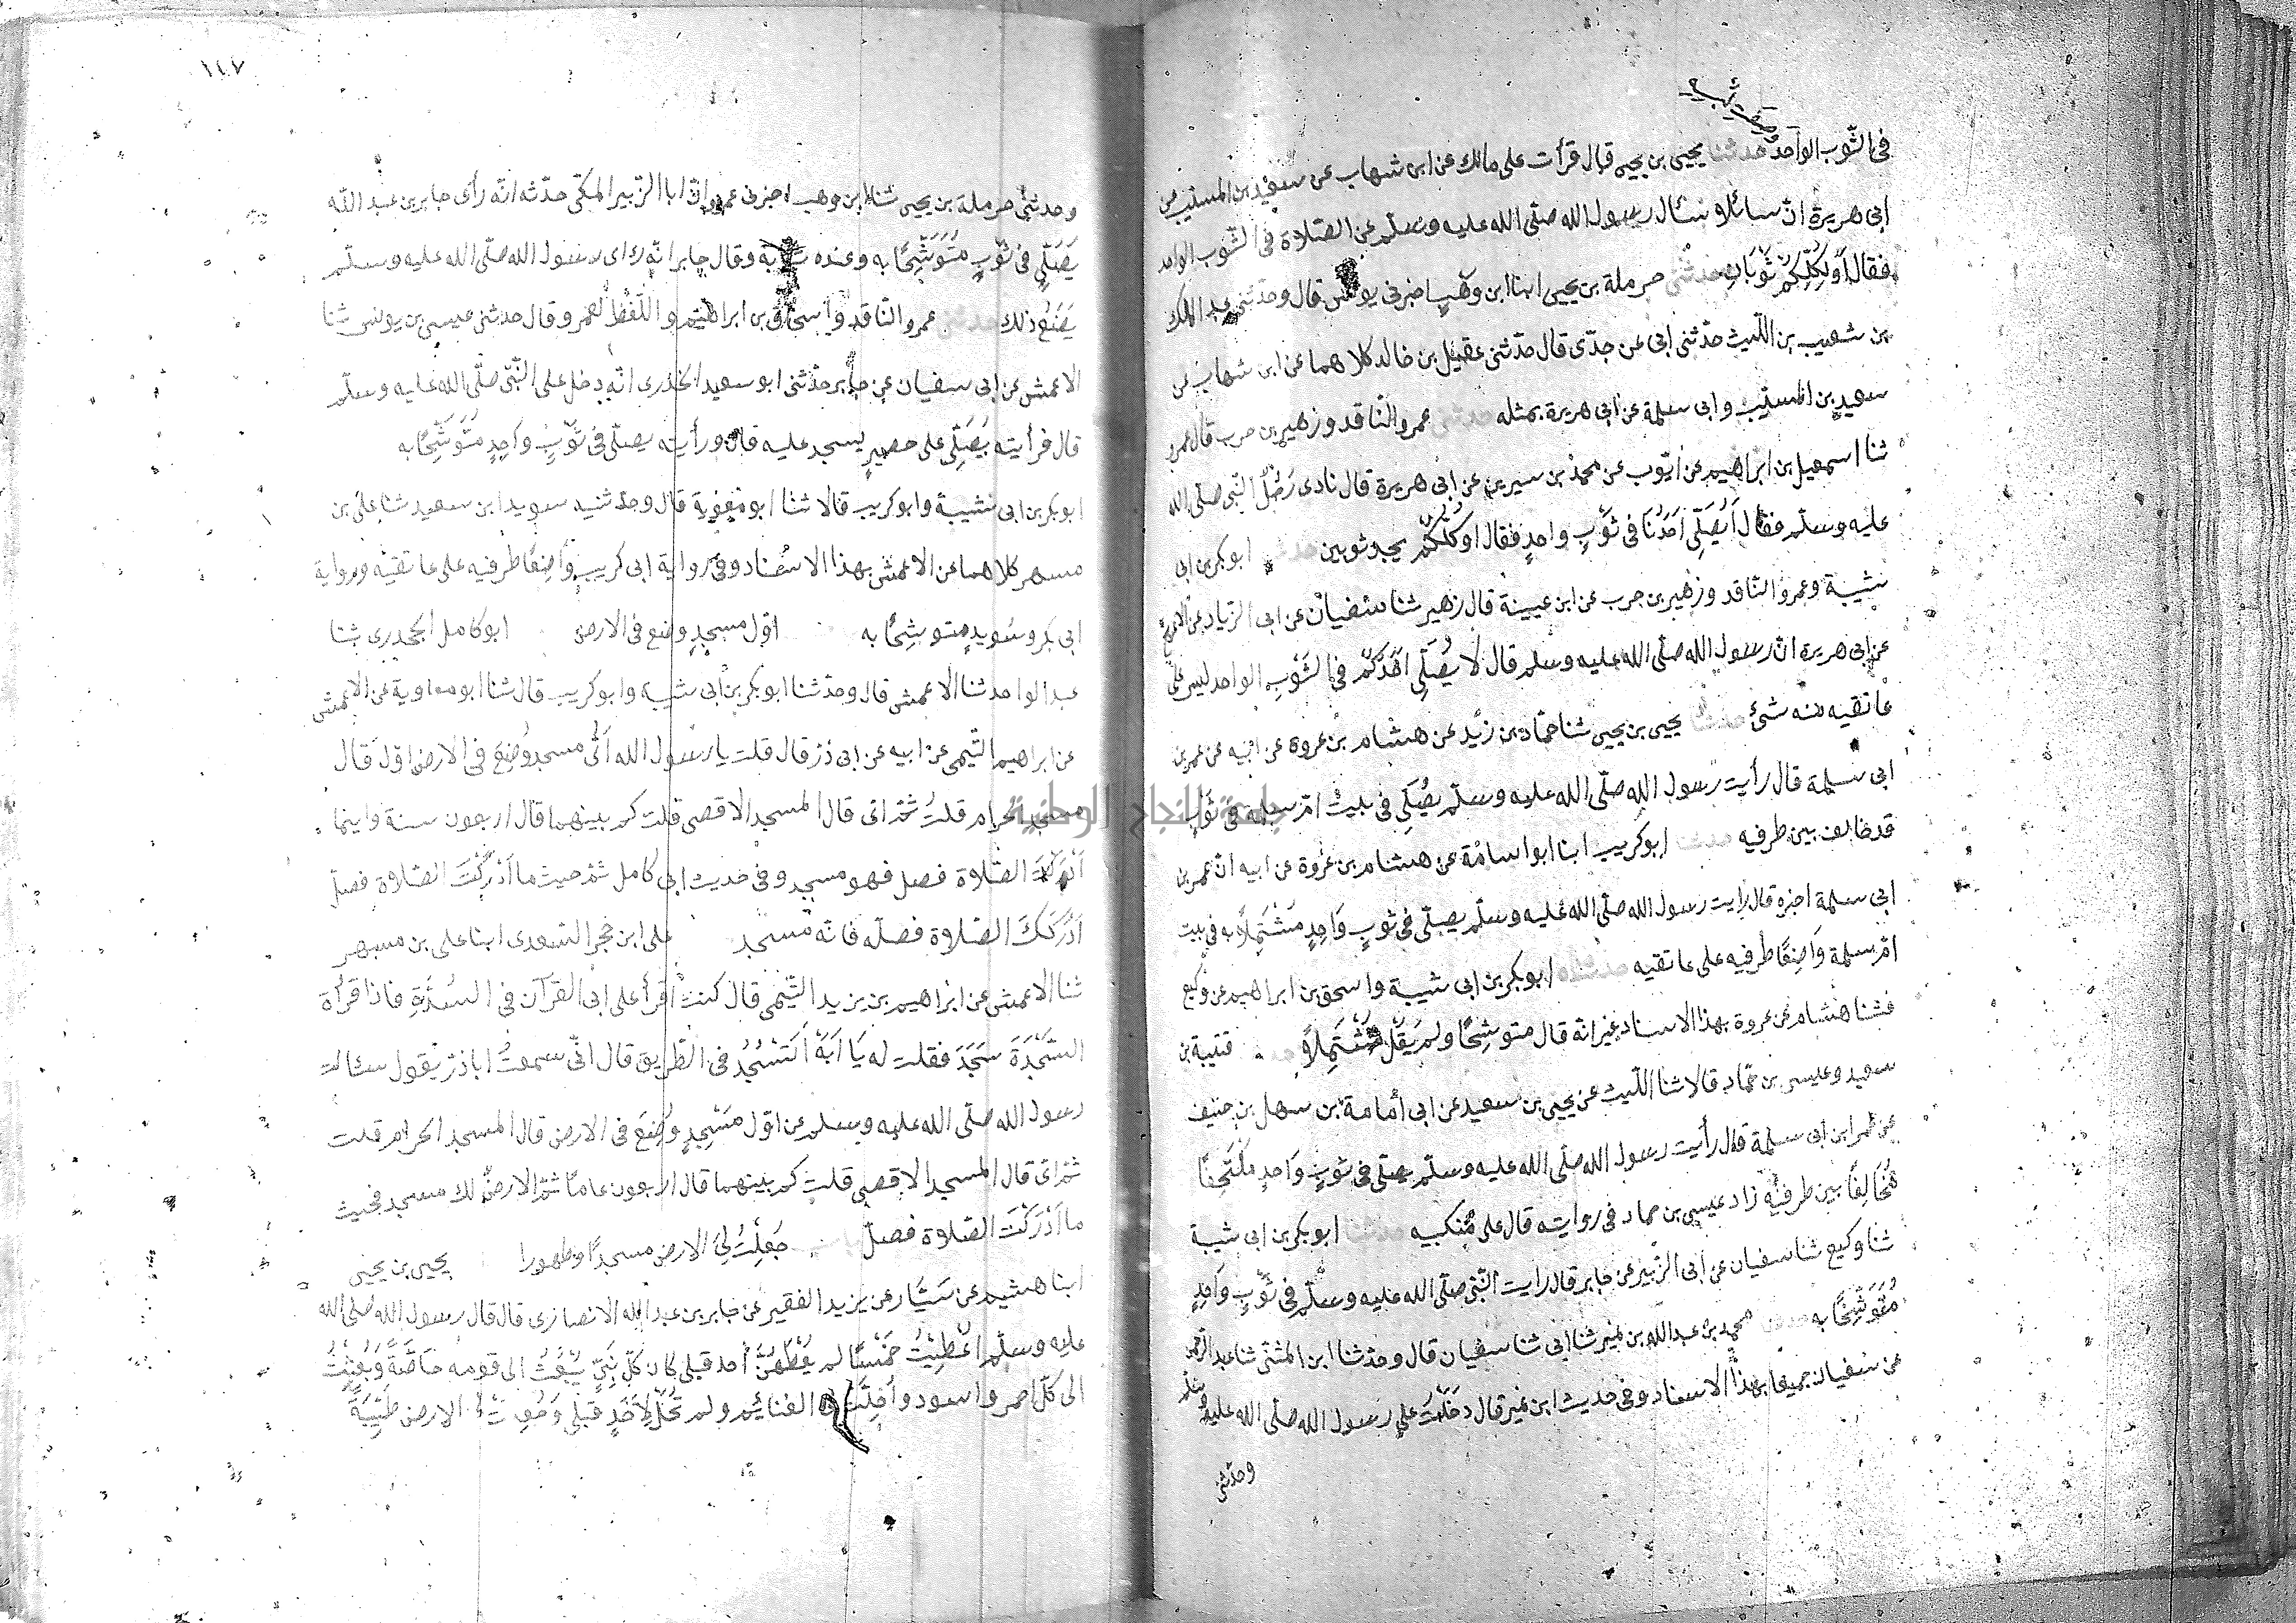 في الثّوب الواحد حدثنا يحيى بن يحيى قال قرأت على مالك عن ابن شهاب عن سعيد بن المسيّب عن
ابى هريرة انّ سائلا سئال رسول الله صلّى الله عليه وسلّم عن الصّلاة فى الثّوب الواحد
فقال أَوَلِكُلِّكُمْ ثَوْبَانِ حدثنى حرملة بن يحيى ابنا ابن وهب اخبرنى يونس قال وحدّثنى عبد الملك
بن شعيب بن اللّيث حدّثنى ابى عن جدّى قال حدّثنى عقيل بن خالد كلاهما عن ابن شهاب عن
سعيد بن المسيّب وابى سلمة عن ابى هريرة بمثله حدثنى عمرو النّاقد وزهير بن حرب قال عمرو
ثنا اسمعيل بن ابراهيم عن ايّوب عن محمّد بن سيرين عن ابى هريرة قال نادى رَجُلٌ النّبى صلّى الله
عليه وسلّم فقال أَيُصَلِّى أَحَدُنَا فى ثَوْبٍ واحدٍ فقال اوكُلُّكُمْ يجد ثوبين حدثنا ابو بكر بن ابى
شيبة وعمرو النّاقد وزهير بن حرب عن ابن عيينة قال زهير ثنا سفيان عن ابى الزّناد عن الاعرج
عن ابى هريرة انّ رسول الله صلّى الله عليه وسلم قال لا يُصَلِّى أَحَدُكُمْ فى الثَّوْبِ الواحد ليس على
عاتقيه منه شئ حدثنا يحيى بن يحيى ثنا حمّاد بن زيد عن هشام بن عروة عن ابيه عن عمر بن
ابى سلمة قال رأيت رسول الله صلّى الله عليه وسلّم يُصَلِّى فى بيت امّ سلمة فى ثوبٍ
قد خالف بين طرفيه حدثنا ابو كريب ابنا ابو اسامة عن هشام بن عروة عن ابيه انّ عمر بن
ابى سلمة اخبره قال رايت رسول الله صلّى الله عليه وسلّم يصلّى فى ثوبٍ وَاحِدٍ مُشْتَمِلاً به فى بيت
امّ سلمة وَاضِعًا طرفيه على عاتقيه حدثناه ابو بكر بن ابى شيبة واسحق بن ابراهيم عن وكيع
ثنا هشام بن عروة بهذا الاسناد غير انّه قال متوشِحًا ولم يَقُلْ مُشْتَمِلاً حدثنا قتيبة بن
سعيد وعيسى بن حمّاد قالا ثنا اللّيث عن يحيى بن سعيد عن ابى أمامة بن سهل بن حنيف
عن عمر ابن ابى سلمة قال رأيت رسول الله صلّى الله عليه وسلّم يصلّى فى ثوبٍ وَاحدٍ مُلْتَحِفًا
مُخَالِفًا بين طرفيه زاد عيسى بن حماد فى روايته قال على مَنْكبيه حدثنا ابو بكر بن ابى شيبة
ثنا وكيع ثنا سفيان عن ابى الزّبير عن جابر قال رايت النّبىّ صلّى الله عليه وسلّم فى ثَوْبٍ وَاحِدٍ
مُتَوَشِّحًا به حدثنا محمد بن عبد الله بن نمير ثنا ابى ثنا سفيان قال وحدّثنا ابن المثنّى ثنا عبد الرّحمن
عن سفيان جميعا بهذا الاسناد وفى حديث ابن نمير قال دخَلْتُ على رسول الله صلّى الله عليه وسلّم
وحدّثنى
١٤٧
وحدثنى حرملة بن يحيى ثنا ابن وهب اخبرنى عمرو انّ ابا الزّبير المكىّ حدّثه انّه رأى جابر بن عبد الله
يُصَلِّى فى ثَوْبٍ مُتَوَشِّحًا به وعنده ثيابه وقال جابر انّه رأى رسول الله صلّى الله عليه وسلّم
يَصْنَعُ ذلك حدثنى عمرو النّاقد واسحاق بن ابراهيم واللّفظ لعمرو قال حدثنى عيسى بن يونس ثنا
الاعمش عن ابى سفيان عن جابر حدّثنى ابو سعيد الخدرى انّه دخل على النّبىّ صلّى الله عليه وسلّم
قال فرأيته يُصَلِّى على حصيرٍ يسجد عليه قال ورأيته يصلّى فى ثَوْبٍ واحِدٍ مُتَوَشِّحًا به
ابو بكر بن ابى شيبة وابو كريب قالا ثنا ابو معوية قال وحدّثنيه سويد ابن سعيد ثنا علىّ بن
مسهر كلاهما عن الاعمش بهذا الاسناد وفى رواية ابى كريب وَاضِعًا طرفيه على عاتقيه ورواية
ابى بكر وسُويد متوشِحًا به اوّل مسجدٍ وضع فى الارض ابو كامل الجحدرى ثنا
عبد الواحد ثنا الاعمش قال وحدّثنا ابو بكر بن ابى شيبة وابو كريب قال ثنا ابو معاوية عن الاعمش
عن ابراهيم التّيمى عن ابيه عن ابى ذرّ قال قلت يا رسول الله اَىُّ مسجد وُضِعَ فى الارض اوّل قال
مسجد الحرام قلتُ ثمّ اىّ قال المسجد الاقصى قلت كم بينهما قال اربعون سنة واينما
أَدْرَكَتْكَ الصّلاة فصل فهو مسجد وفى حديث ابى كامل ثمّ حيث ما أَدْرَكَتْكَ الصّلاة فصلّ
أَدْرَكَتْكَ الصّلاة فصلّه فانّه مسجد على ابن حُجر السّعدى ابنا على بن مسهر
ثنا الاعمش عن ابراهيم بن يزيد التّيمى قال كنت أقرأ على ابى القرآن فى السُّدَّةِ فاذا قرأة
السَّجْدَةَ سَجَدَ فقلت له يَا أَبَةْ أَتَسْجُدُ فى الطّريق قال انّى سمعتُ ابا ذرّ يقول سئالت
رسول الله صلّى الله عليه وسلم عن اوّل مَسْجِدٍ وُضِعَ فى الارض قال المسجد الحرام قلت
ثمّ اىّ قال المسجد الاقصى قلت كم بينهما قال اربعون عامًا ثمّ الارضُ لك مسجد فحيث
ما أَدْرَكَتْكَ الصّلاة فصلّ جُعِلَتْ لِىَ الارض مسجدًا وطهورا يحيى بن يحيى
ابنا هشيم عن سَيَّار عن يزيد الفقير عن جابر بن عبد الله الانصارى قال قال رسول الله صلى الله
عليه وسلّم أُعْطِيتُ خَمْسًا لم يُعْطَهُنَّ أحد قبلى كان كلّ نَبِىٍّ يُبْعَثُ الى قومه خاصَّةً وَبُعِثْتُ
الى كلّ احمر واسود وأُحِلَّتْ لى الغنائم ولم تحَلّ لِأَحَدٍ قبلى وَجُعِلَتْ لى الارض طَيِّبَةً
جامعة النجاح الوطنية